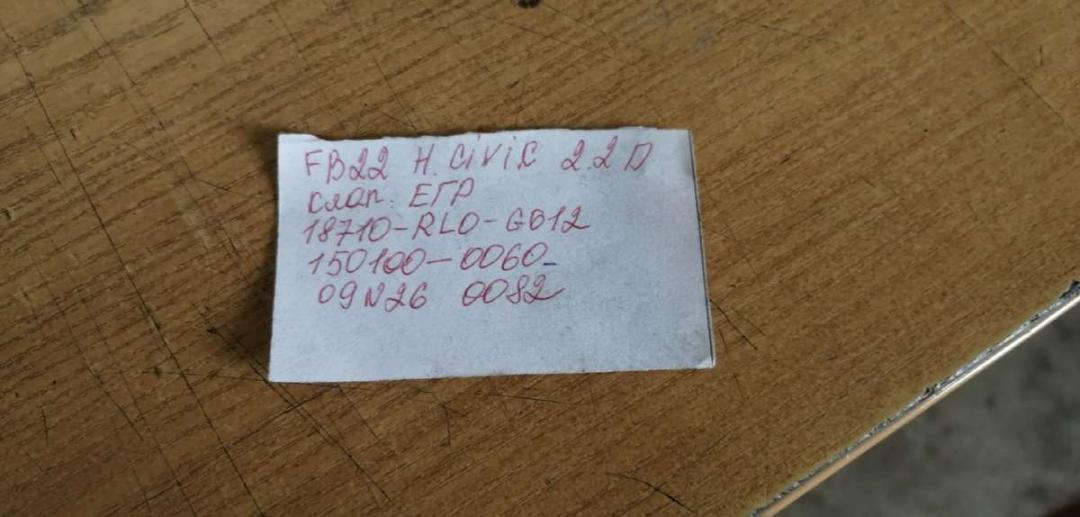 FB22 H. CiViC 2.2 D
клап. ЕГР
18710-RLO-G012
150100-0060-
09N26 0082